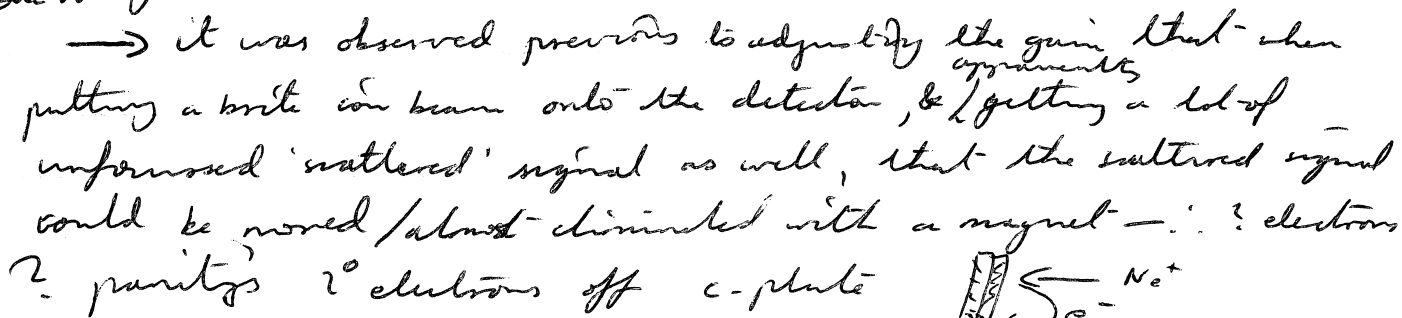 → it was observed previous to adjusting the gain that when
apparently
putting a brite ion beam onto the detector, & / getting a lot of
unfocussed 'scattered' signal as well, that the scattered signal
could be moved / almost eliminated with a magnet — ∴ ? electrons
? 2° electrons off c-plate Ne⁺
e⁻